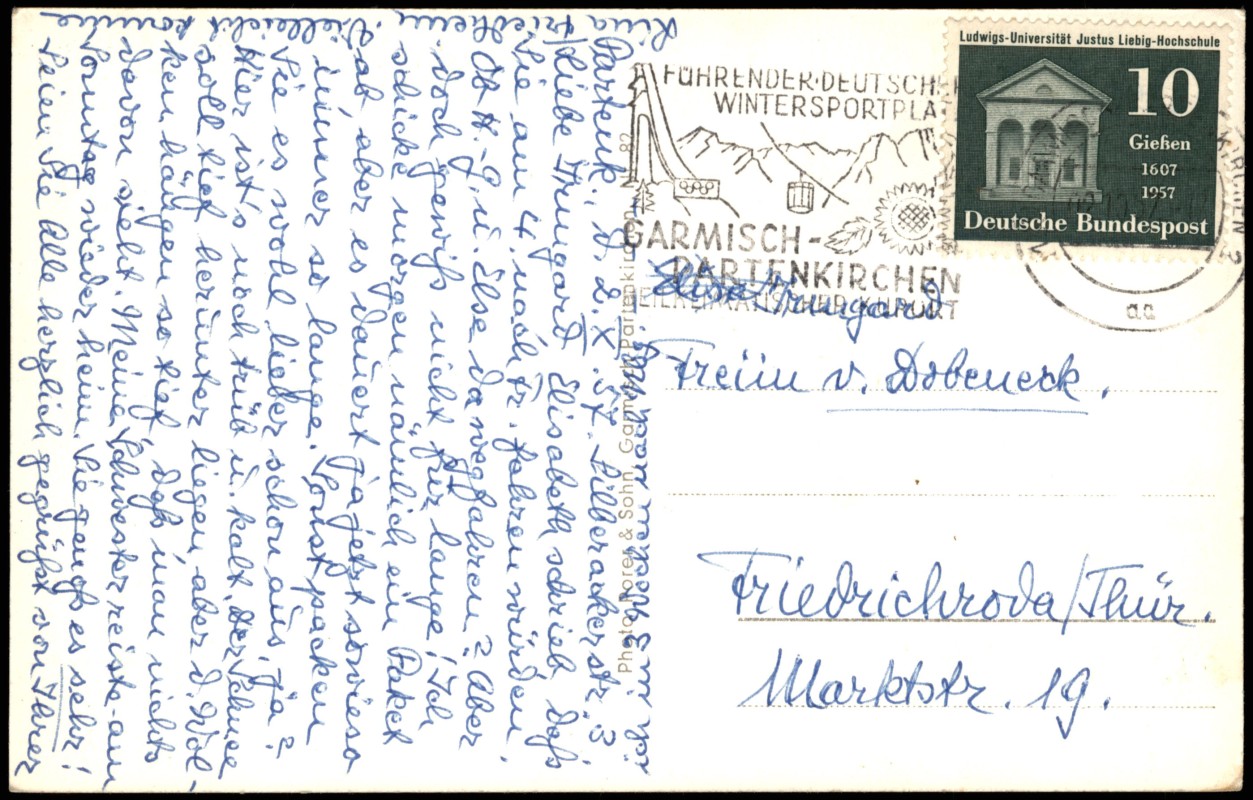 Partenk., d. 2. X. 57. Silberackerstr. 3
Liebe Irmgard! Elisabeth schrieb, daß
Sie am 4. nach Fr. fahren würden.
Ob H.-G. u. Else da wegfahren? Aber
doch gewiß nicht für lange! Ich
schicke morgen nämlich ein Paket
ab, aber es dauert ja jetzt sowieso
immer so lange. Sonst packen
Sie es wohl lieber schon aus, ja?
Hier ist's noch trüb u. kalt. Der Schnee
soll tief herunter liegen, aber d. Wol-
ken hängen so tief, daß man nichts
davon sieht. Meine Schwester reiste am
Sonntag wieder heim. Sie genoß es sehr!
Seien Sie Alle herzlich gegrüßt von Ihrer
Lina
Vielleicht komme
ich in 3 Wochen nach
Photo Dorey & Sohn, Garmisch-Partenkirchen Nr. 82
FÜHRENDER·DEUTSCHER
WINTERSPORTPLA
GARMISCH-
PARTENKIRCHEN
HEILKLIMATISCHER KURORT
Ludwigs-Universität Justus Liebig-Hochschule
10
Gießen
1607
1957
Deutsche Bundespost
KIRCHEN 2
aa
Irmgard
Freiin v. Dobeneck,
Friedrichroda/Thür.
Marktstr. 19.